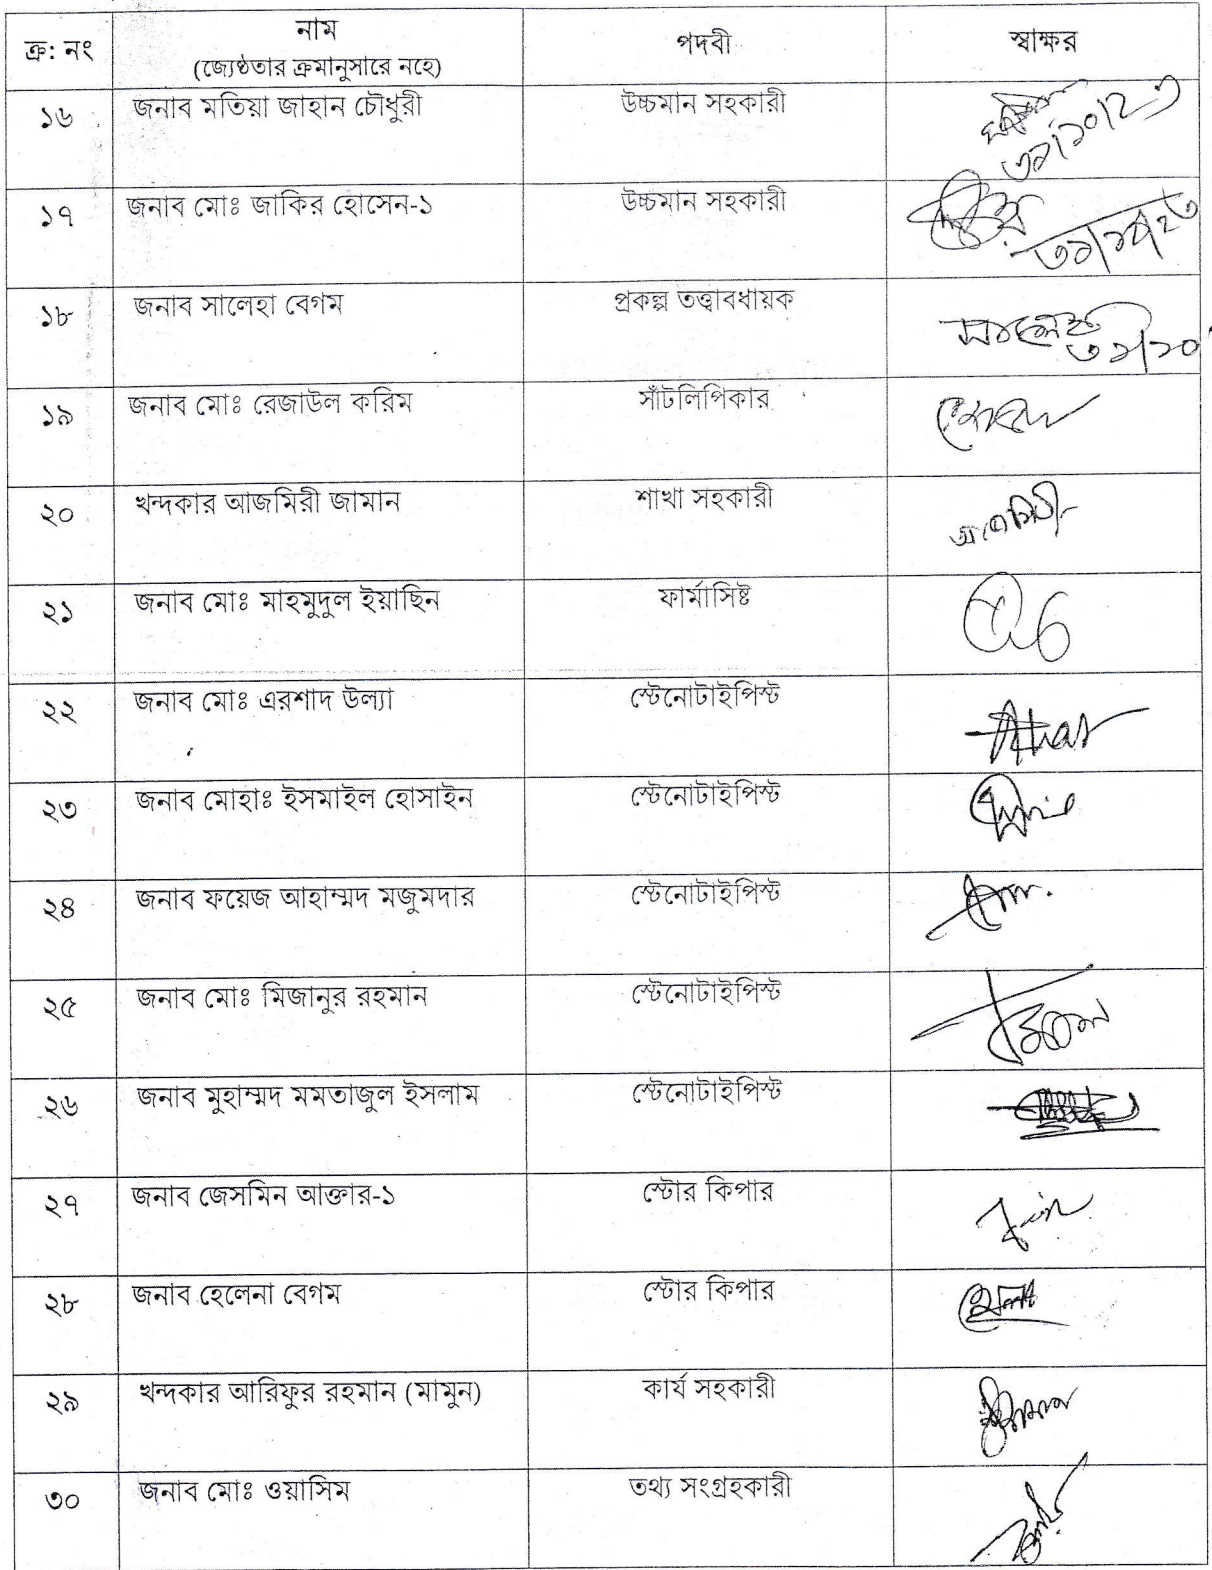 ক্র: নং নাম পদবী স্বাক্ষর
(জ্যেষ্ঠতার ক্রমানুসারে নহে)
১৬ জনাব মতিয়া জাহান চৌধুরী উচ্চমান সহকারী
৩১/১০/২৩
১৭ জনাব মোঃ জাকির হোসেন-১ উচ্চমান সহকারী
১৮ জনাব সালেহা বেগম প্রকল্প তত্ত্বাবধায়ক সালেহা
৩১/১০
১৯ জনাব মোঃ রেজাউল করিম সাঁটলিপিকার
২০ খন্দকার আজমিরী জামান শাখা সহকারী আজমিরী
২১ জনাব মোঃ মাহমুদুল ইয়াছিন ফার্মাসিষ্ট
২২ জনাব মোঃ এরশাদ উল্যা স্টেনোটাইপিস্ট
২৩ জনাব মোহাঃ ইসমাইল হোসাইন স্টেনোটাইপিস্ট
২৪ জনাব ফয়েজ আহাম্মদ মজুমদার স্টেনোটাইপিস্ট
২৫ জনাব মোঃ মিজানুর রহমান স্টেনোটাইপিস্ট
২৬ জনাব মুহাম্মদ মমতাজুল ইসলাম স্টেনোটাইপিস্ট
২৭ জনাব জেসমিন আক্তার-১ স্টোর কিপার
২৮ জনাব হেলেনা বেগম স্টোর কিপার
২৯ খন্দকার আরিফুর রহমান (মামুন) কার্য সহকারী
৩০ জনাব মোঃ ওয়াসিম তথ্য সংগ্রহকারী